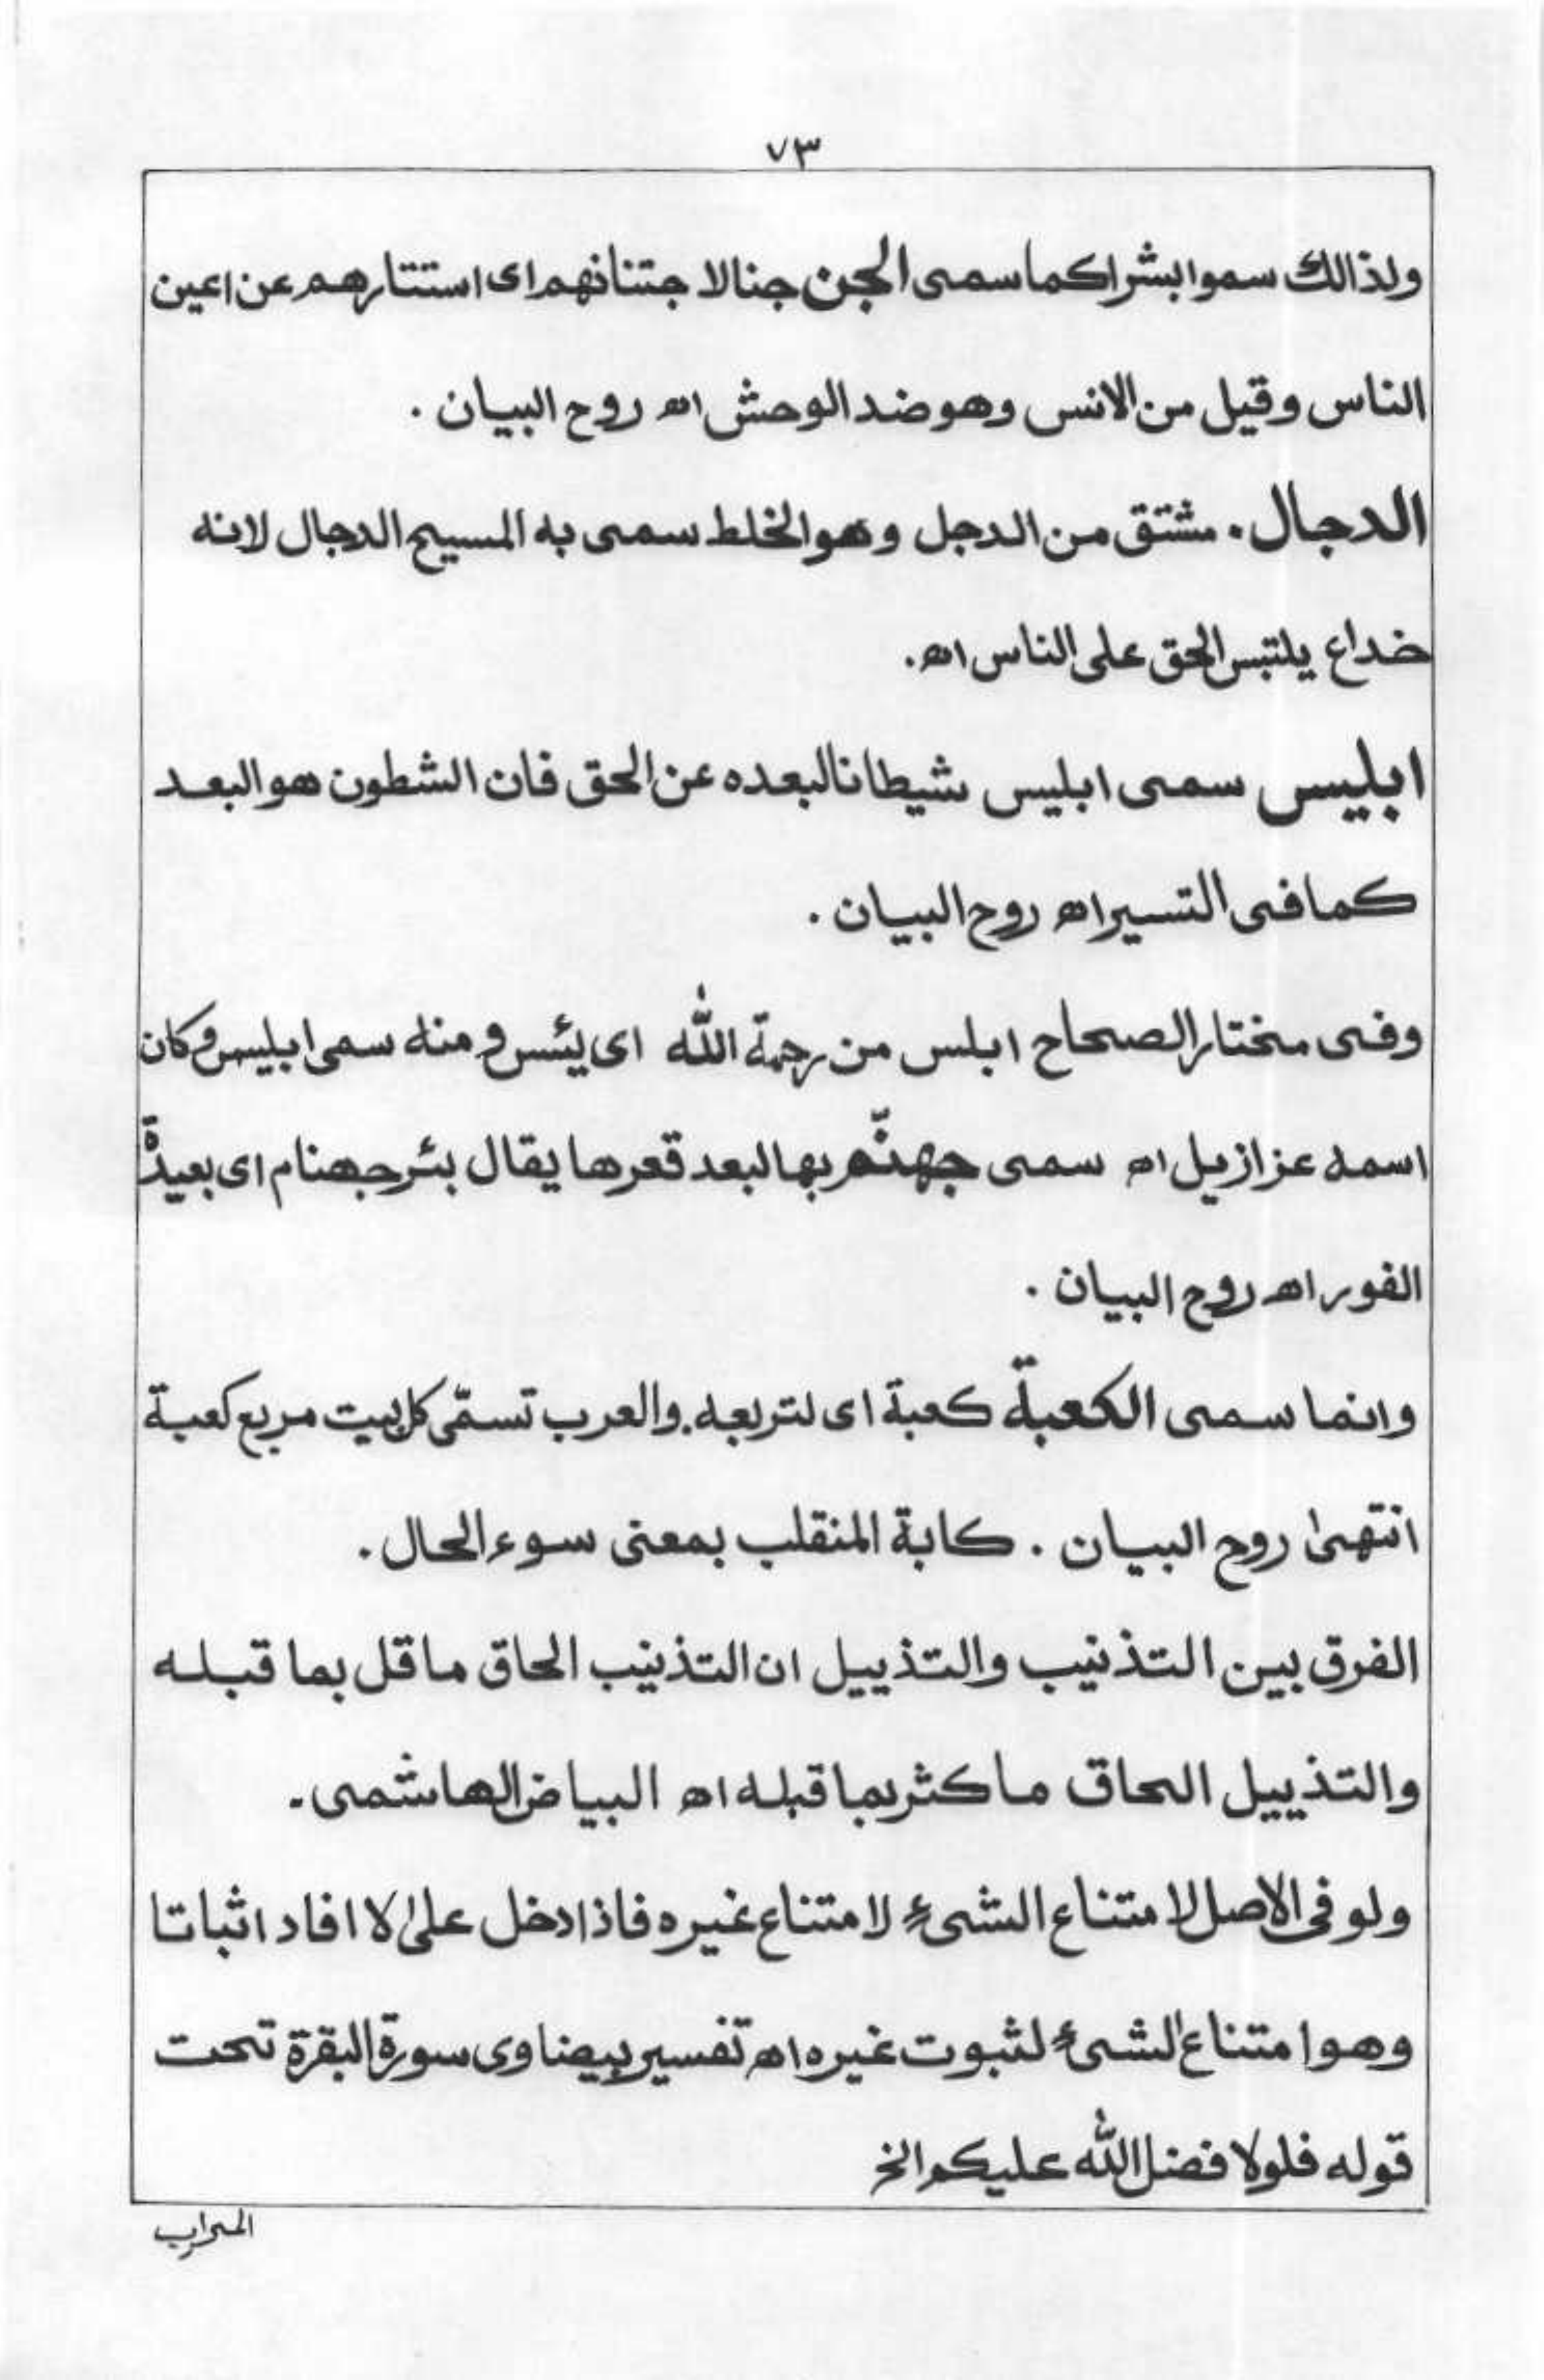 ٧٣
ولذالك سموا بشرا كما سمى الجن جنا لا جتنانهم اى استتارهم عن اعين
الناس وقيل من الانس وهو ضد الوحش اھ روح البيان .
الدجال . مشتق من الدجل وهو الخلط سمى به المسيح الدجال لانه
خداع يلتبس الحق على الناس اھ .
ابليس سمى ابليس شيطانا لبعده عن الحق فان الشطون هو البعد
كما فى التسير اھ روح البيان .
وفى مختار الصحاح ابلس من رحمة الله اى يئس و منه سمى ابليس و كان
اسمه عزازيل اھ سمى جهنّم بها لبعد قعرها يقال بئر جهنام اى بعيدة
الفور اھ روح البيان .
وانما سمى الكعبة كعبة اى لتربعه . والعرب تسمّى كل بيت مربع كعبة
انتهىٰ روح البيان . كابة المنقلب بمعنى سوء الحال .
الفرق بين التذنيب والتذييل ان التذنيب الحاق ما قل بما قبله
والتذييل الحاق ما كثر بما قبله اھ البياض الهاشمى .
ولو فى الاصل لا متناع الشىء لا متناع غيره فاذا دخل علىٰ لا افاد اثباتا
وهو امتناع الشىء لثبوت غيره اھ تفسير بيضاوى سورة البقرة تحت
قوله فلولا فضل الله عليكم الخ